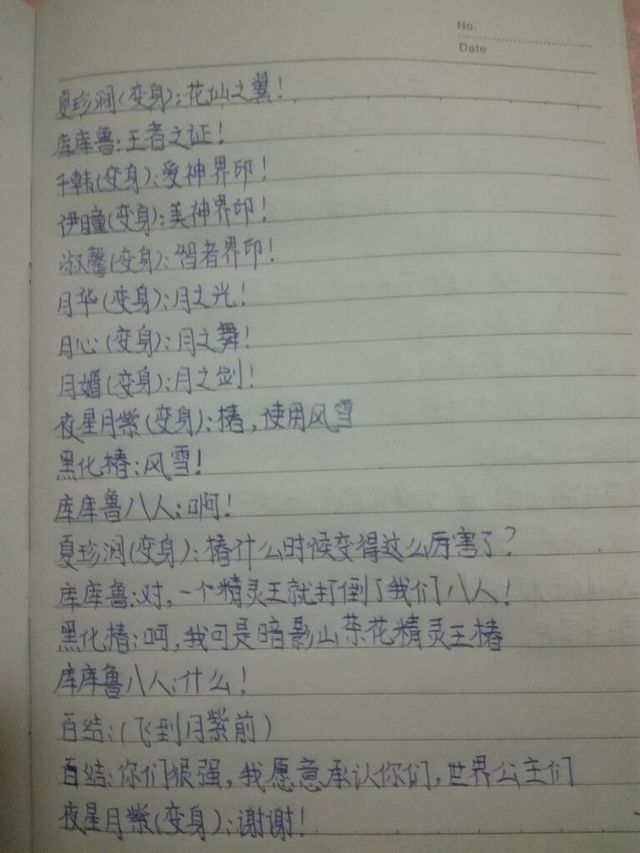 No.
Date
夏珍润(变身):花仙之翼!
库库鲁:王者之证!
千韩(变身):爱神界印!
伊瞳(变身):美神界印!
淑馨(变身):智者界印!
月华(变身):月之光!
月心(变身):月之舞!
月婚(变身):月之剑!
夜星月紫(变身):椿,使用风雪
黑化椿:风雪!
库库鲁八人:啊!
夏珍润(变身):椿什么时候变得这么厉害了?
库库鲁:对,一个精灵王就打倒了我们八人!
黑化椿:呵,我可是暗影山茶花精灵王椿
库库鲁八人:什么!
百结:(飞到月紫前)
百结:你们很强,我愿意承认你们,世界公主们
夜星月紫(变身):谢谢!